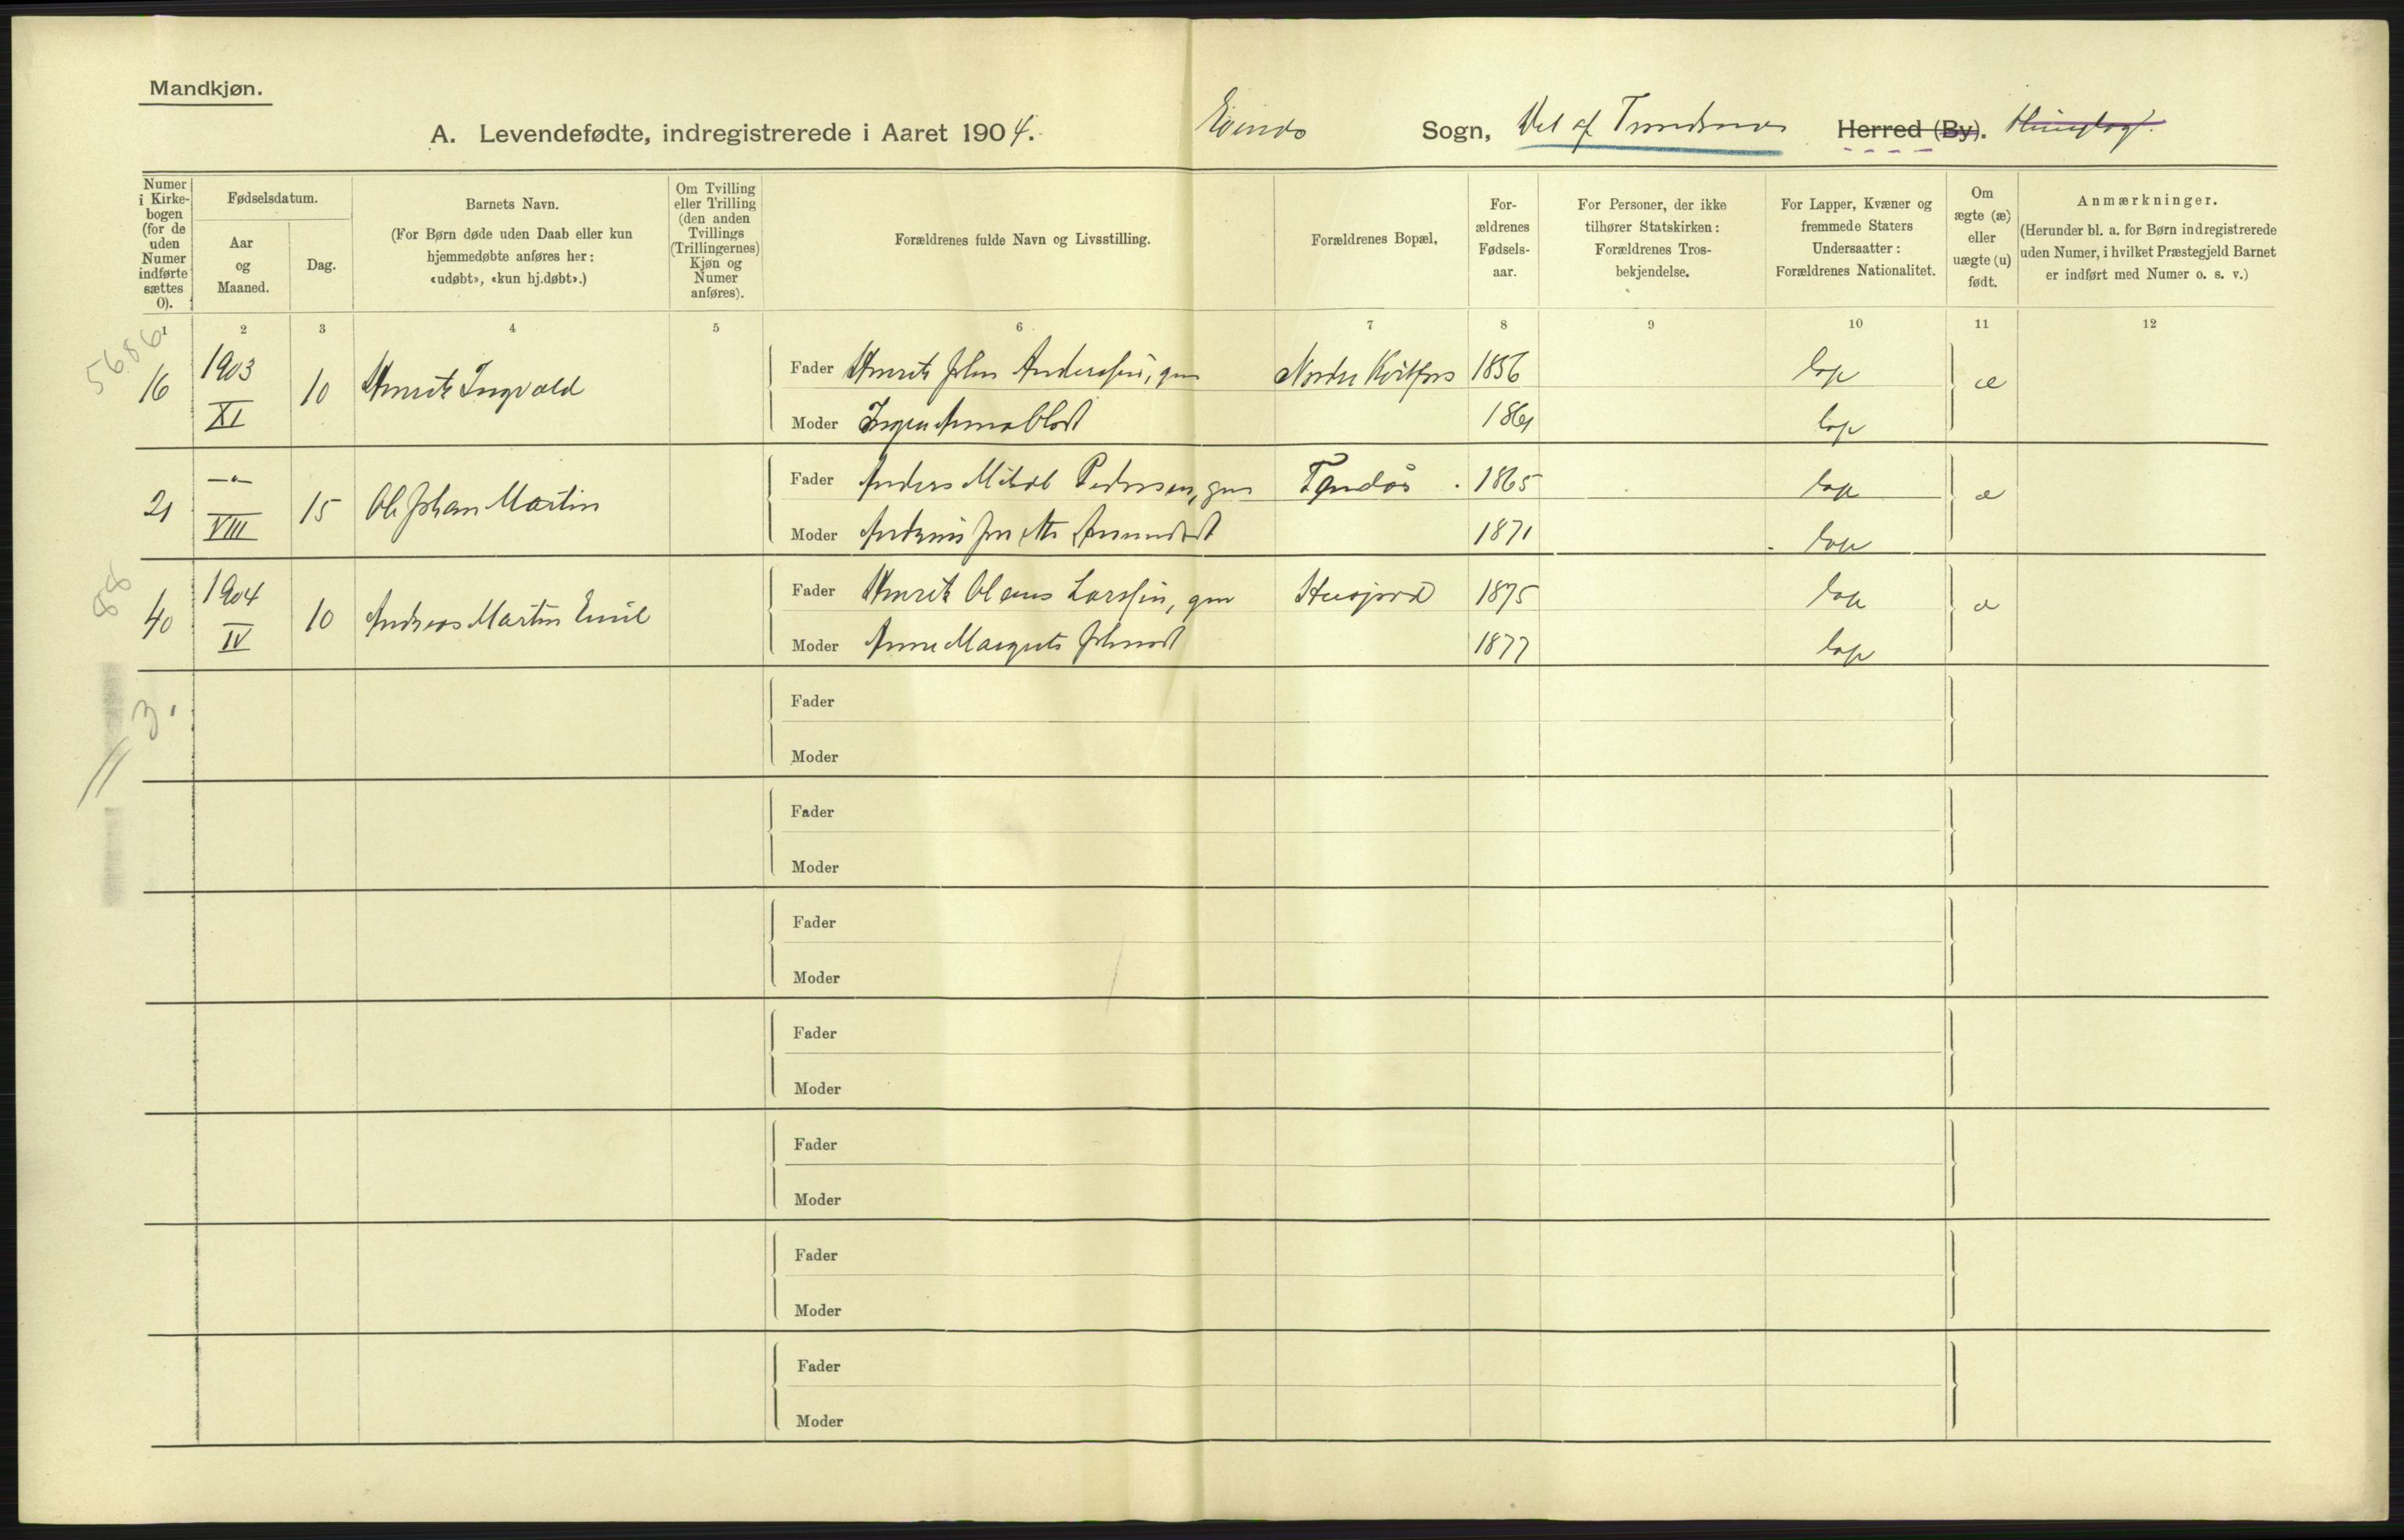 Mandkjøn.
A. Levendefødte, indregistrerede i Aaret 1904. Evenes Sogn, Del af Trondenes Herred (By).
Numer i Kirkebogen (for de uden Numer indførte sættes 0).
Fødselsdatum.
Aar og Maaned.
Dag.
Barnets Navn.
(For Børn døde uden Daab eller kun hjemmedøbte anføres her: «udøbt», «kun hj.døbt».)
Om Tvilling eller Trilling (den anden Tvillings (Trillingernes) Kjøn og Numer anføres).
Forældrenes fulde Navn og Livsstilling.
Forældrenes Bopæl,
For-ældrenes Fødsels-aar.
For Personer, der ikke tilhører Statskirken: Forældrenes Tros-bekjendelse.
For Lapper, Kvæner og fremmede Staters Undersaatter: Forældrenes Nationalitet.
Om ægte (æ) eller uægte (u) født.
Anmærkninger.
(Herunder bl. a. for Børn indregistrerede uden Numer, i hvilket Præstegjeld Barnet er indført med Numer o. s. v.)
1 2 3 4 5 6 7 8 9 10 11 12
5686
16 1903 XI 10 Henrik Ingvald
Fader Henrik Johan Anderssen, gm Nordre Kvitfors 1856 lap æ
Moder Inger Anna Olsd 1861 lap
21 —"— VIII 15 Ole Johan Martin
Fader Anders Mikal Pedersen, gm 1865 lap æ
Moder Amundsd 1871 lap
88
40 1904 IV 10 Andreas Martin Emil
Fader Henrik Olaus Larssen, gm Husjord 1875 lap æ
Moder Anne Margrete Johnsd 1877 lap
3.
Fader
Moder
Fader
Moder
Fader
Moder
Fader
Moder
Fader
Moder
Fader
Moder
Fader
Moder